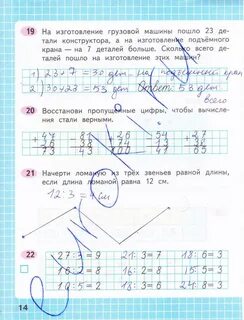 19 На изготовление грузовой машины пошло 23 де-
тали конструктора, а на изготовление подъёмного
крана — на 7 деталей больше. Сколько всего де-
талей пошло на изготовление этих машин?
1) 23+7=30 дет. на подъёмный кран
2) 30+23=53 дет. Ответ: 53 дет.
всего
20 Восстанови пропущенные цифры, чтобы вычисле-
ния стали верными.
73 43 100 47 65
21 Начерти ломаную из трёх звеньев равной длины,
если длина ломаной равна 12 см.
12:3=4 см
22 27:3=9 21:3=7 18:6=3
16:2=8 16:8=2 15:5=3
10:5=2 18:3=6 24:8=3
14